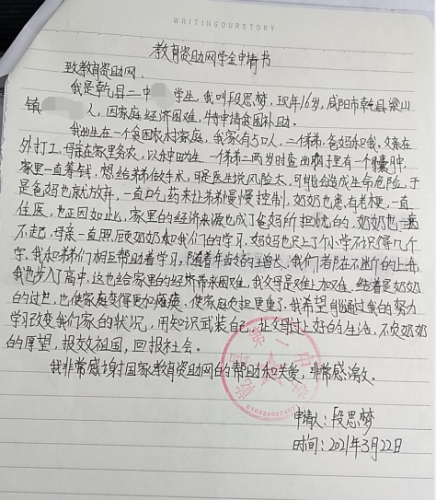 WRITINGOURSTORY
教育资助网学金申请书
致教育资助网:
我是乾县二中 学生,我叫段思梦,现年16岁,咸阳市乾县梁山
镇 人,因家庭经济困难,特申请贫困补助。
我出生在一个贫困农村家庭,我家有5口人,二个弟弟,爸妈和我,父亲在
外打工,母亲在家里务农,以
一个弟弟二两岁时查出脑子里有一个囊肿,
家里一直筹钱,想给弟弟做手术,可是医生说风险太大,可能会造成生命危险,于
是爸妈也就放弃,一直吃药来让弟弟慢慢控制,奶奶也患有老病,一直
住医,也正因如此,家里的经济来源也成了爸妈所担忧的,奶奶也一
不起,母亲一直照顾奶奶和我们的学习,妈妈也只上了个小学不识得几个
字,我和弟弟们相互帮助着学习,随着年龄的增长,我们都在不断的上升,
我也步入了高中,这也给家里的经济带来困难,我父母是难上加难,
的过世,也使家庭变得更加 ,使家庭负担更重了,我希望能通过我的努力
学习改变我们家的状况,用知识武装自己,让父母过上好的生活,不负奶奶
的厚望,报效祖国,回报社会。
我非常感谢国家教育资助网的帮助和关爱,非常感激。
申请人:段思梦
时间:2021年3月22日